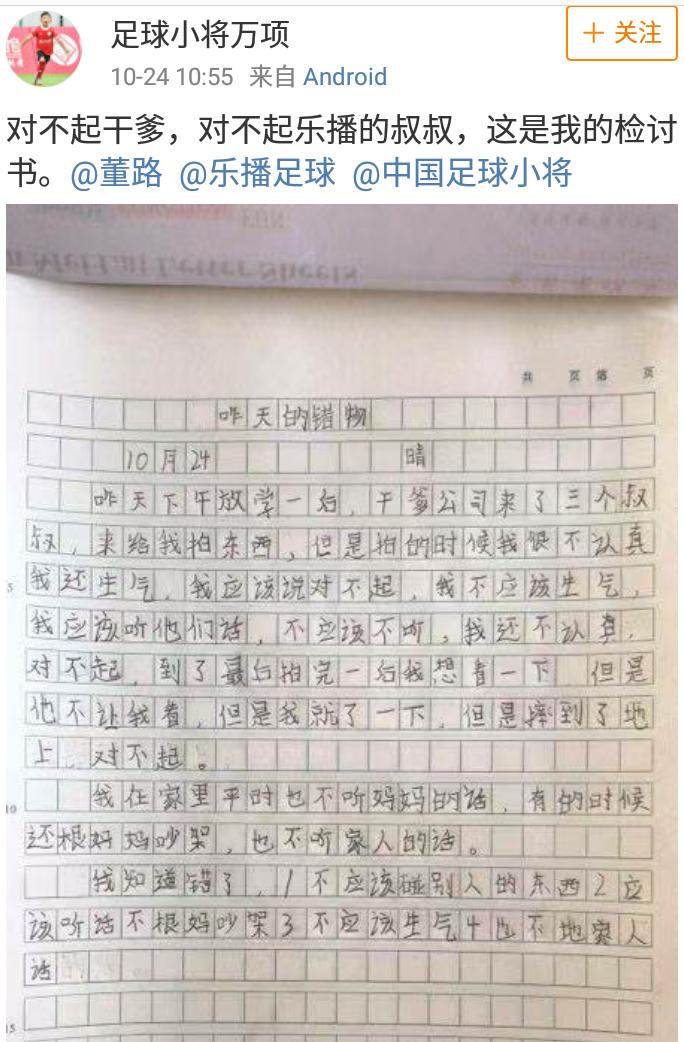 足球小将万项
＋ 关注
10-24 10:55 来自 Android
对不起干爹，对不起乐播的叔叔，这是我的检讨
书。@董路 @乐播足球 @中国足球小将
共 页 第 页
昨天的错物
10月24 晴
昨天下午放学一后，干爹公司来了三个叔
叔，来给我拍东西，但是拍的时候我很不认真
5
我还生气，我应该说对不起，我不应该生气，
我应该听他们话，不应该不听，我还不认真，
对不起，到了最后拍完一后我想看一下 但是
他不让我看，但是我就了一下，但是摔到了地
上，对不起。
10
我在家里平时也不听妈妈的话，有的时候
还根妈妈吵架，也不听家人的话。
我知道错了，1不应该碰别人的东西2应
该听话不根妈吵架3不应该生气4也不地家人
话
15